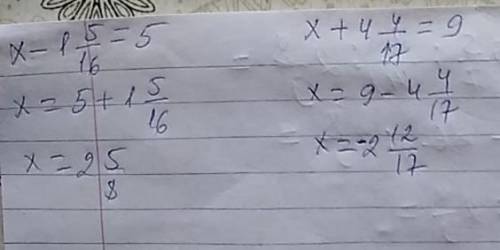 x - 1 5/16 = 5
x = 5 + 1 5/16
x = 2 5/8
x + 4 4/17 = 9
x = 9 - 4 4/17
x = -2 12/17